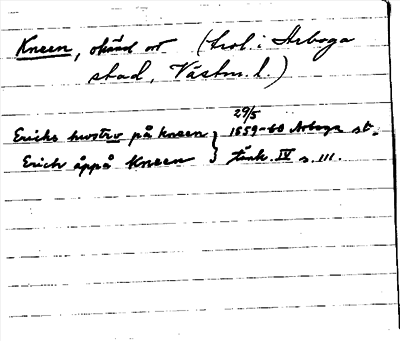 Kneen, okänd ort (trol. i Arboga
stad, Västm. l.)
29/5
Ericks hwstrv på kneen } 1559-60 Arboga st.
Erich åppå Kneen } tänk. IV s. 111.